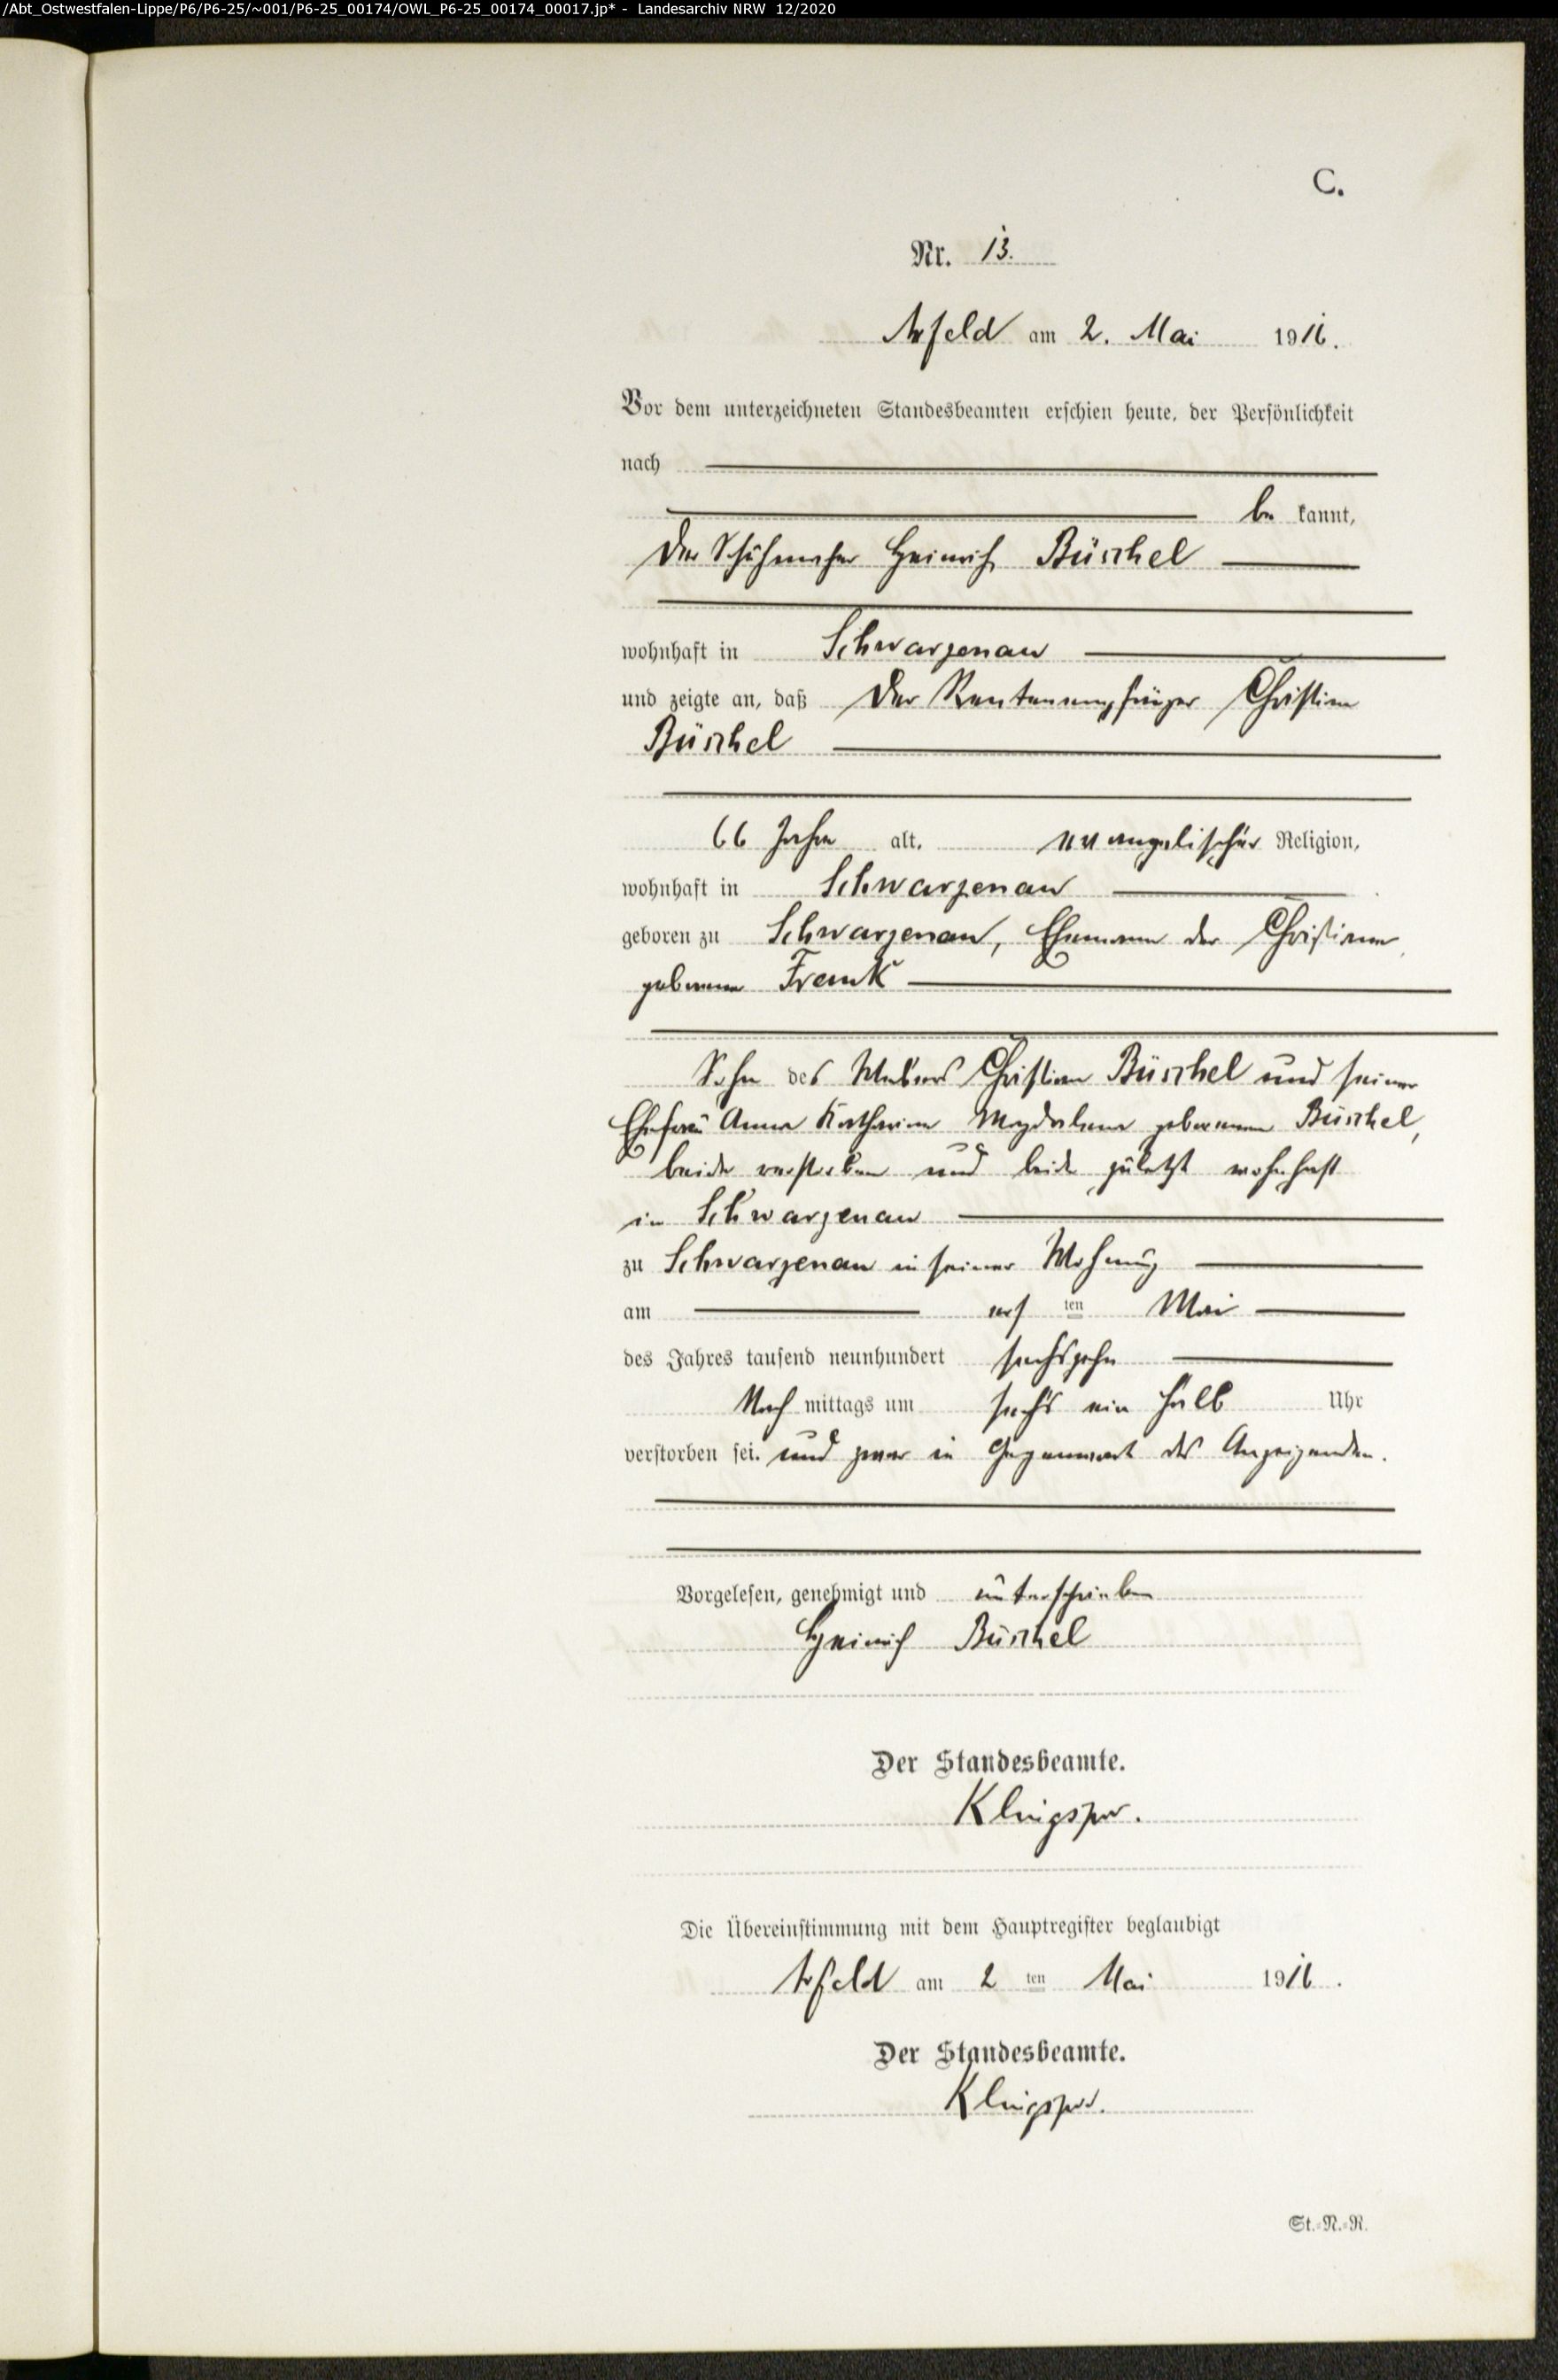 /Abt_Ostwestfalen-Lippe/P6/P6-25/~001/P6-25_00174/OWL_P6-25_00174_00017.jp* - Landesarchiv NRW 12/2020
C.
Nr. 13.
Arfeld am 2. Mai 1916.
Vor dem unterzeichneten Standesbeamten erschien heute, der Persönlichkeit
nach
be kannt,
der Schuhmacher Heinrich Büschel
wohnhaft in Schwarzenau
und zeigte an, daß der Rentenempfänger Christian
Büschel
66 Jahre alt, evangelischer Religion,
wohnhaft in Schwarzenau
geboren zu Schwarzenau, Ehemann der Christiane
geborene Frank
Sohn des Webers Christian Büschel und seiner
Ehefrau Anna Katharine Magdalene geborenen Büschel,
beide verstorben und beide zuletzt wohnhaft
in Schwarzenau
zu Schwarzenau in seiner Wohnung
am ersten Mai
des Jahres tausend neunhundert sechszehn
Nach mittags um sechs ein halb Uhr
verstorben sei. und zwar in Gegenwart des Anzeigenden.
Vorgelesen, genehmigt und unterschrieben
Heinrich Büschel
Der Standesbeamte.
Klingspor.
Die Übereinstimmung mit dem Hauptregister beglaubigt
Arfeld am 2 ten Mai 1916.
Der Standesbeamte.
Klingspor.
St.-N.-R.